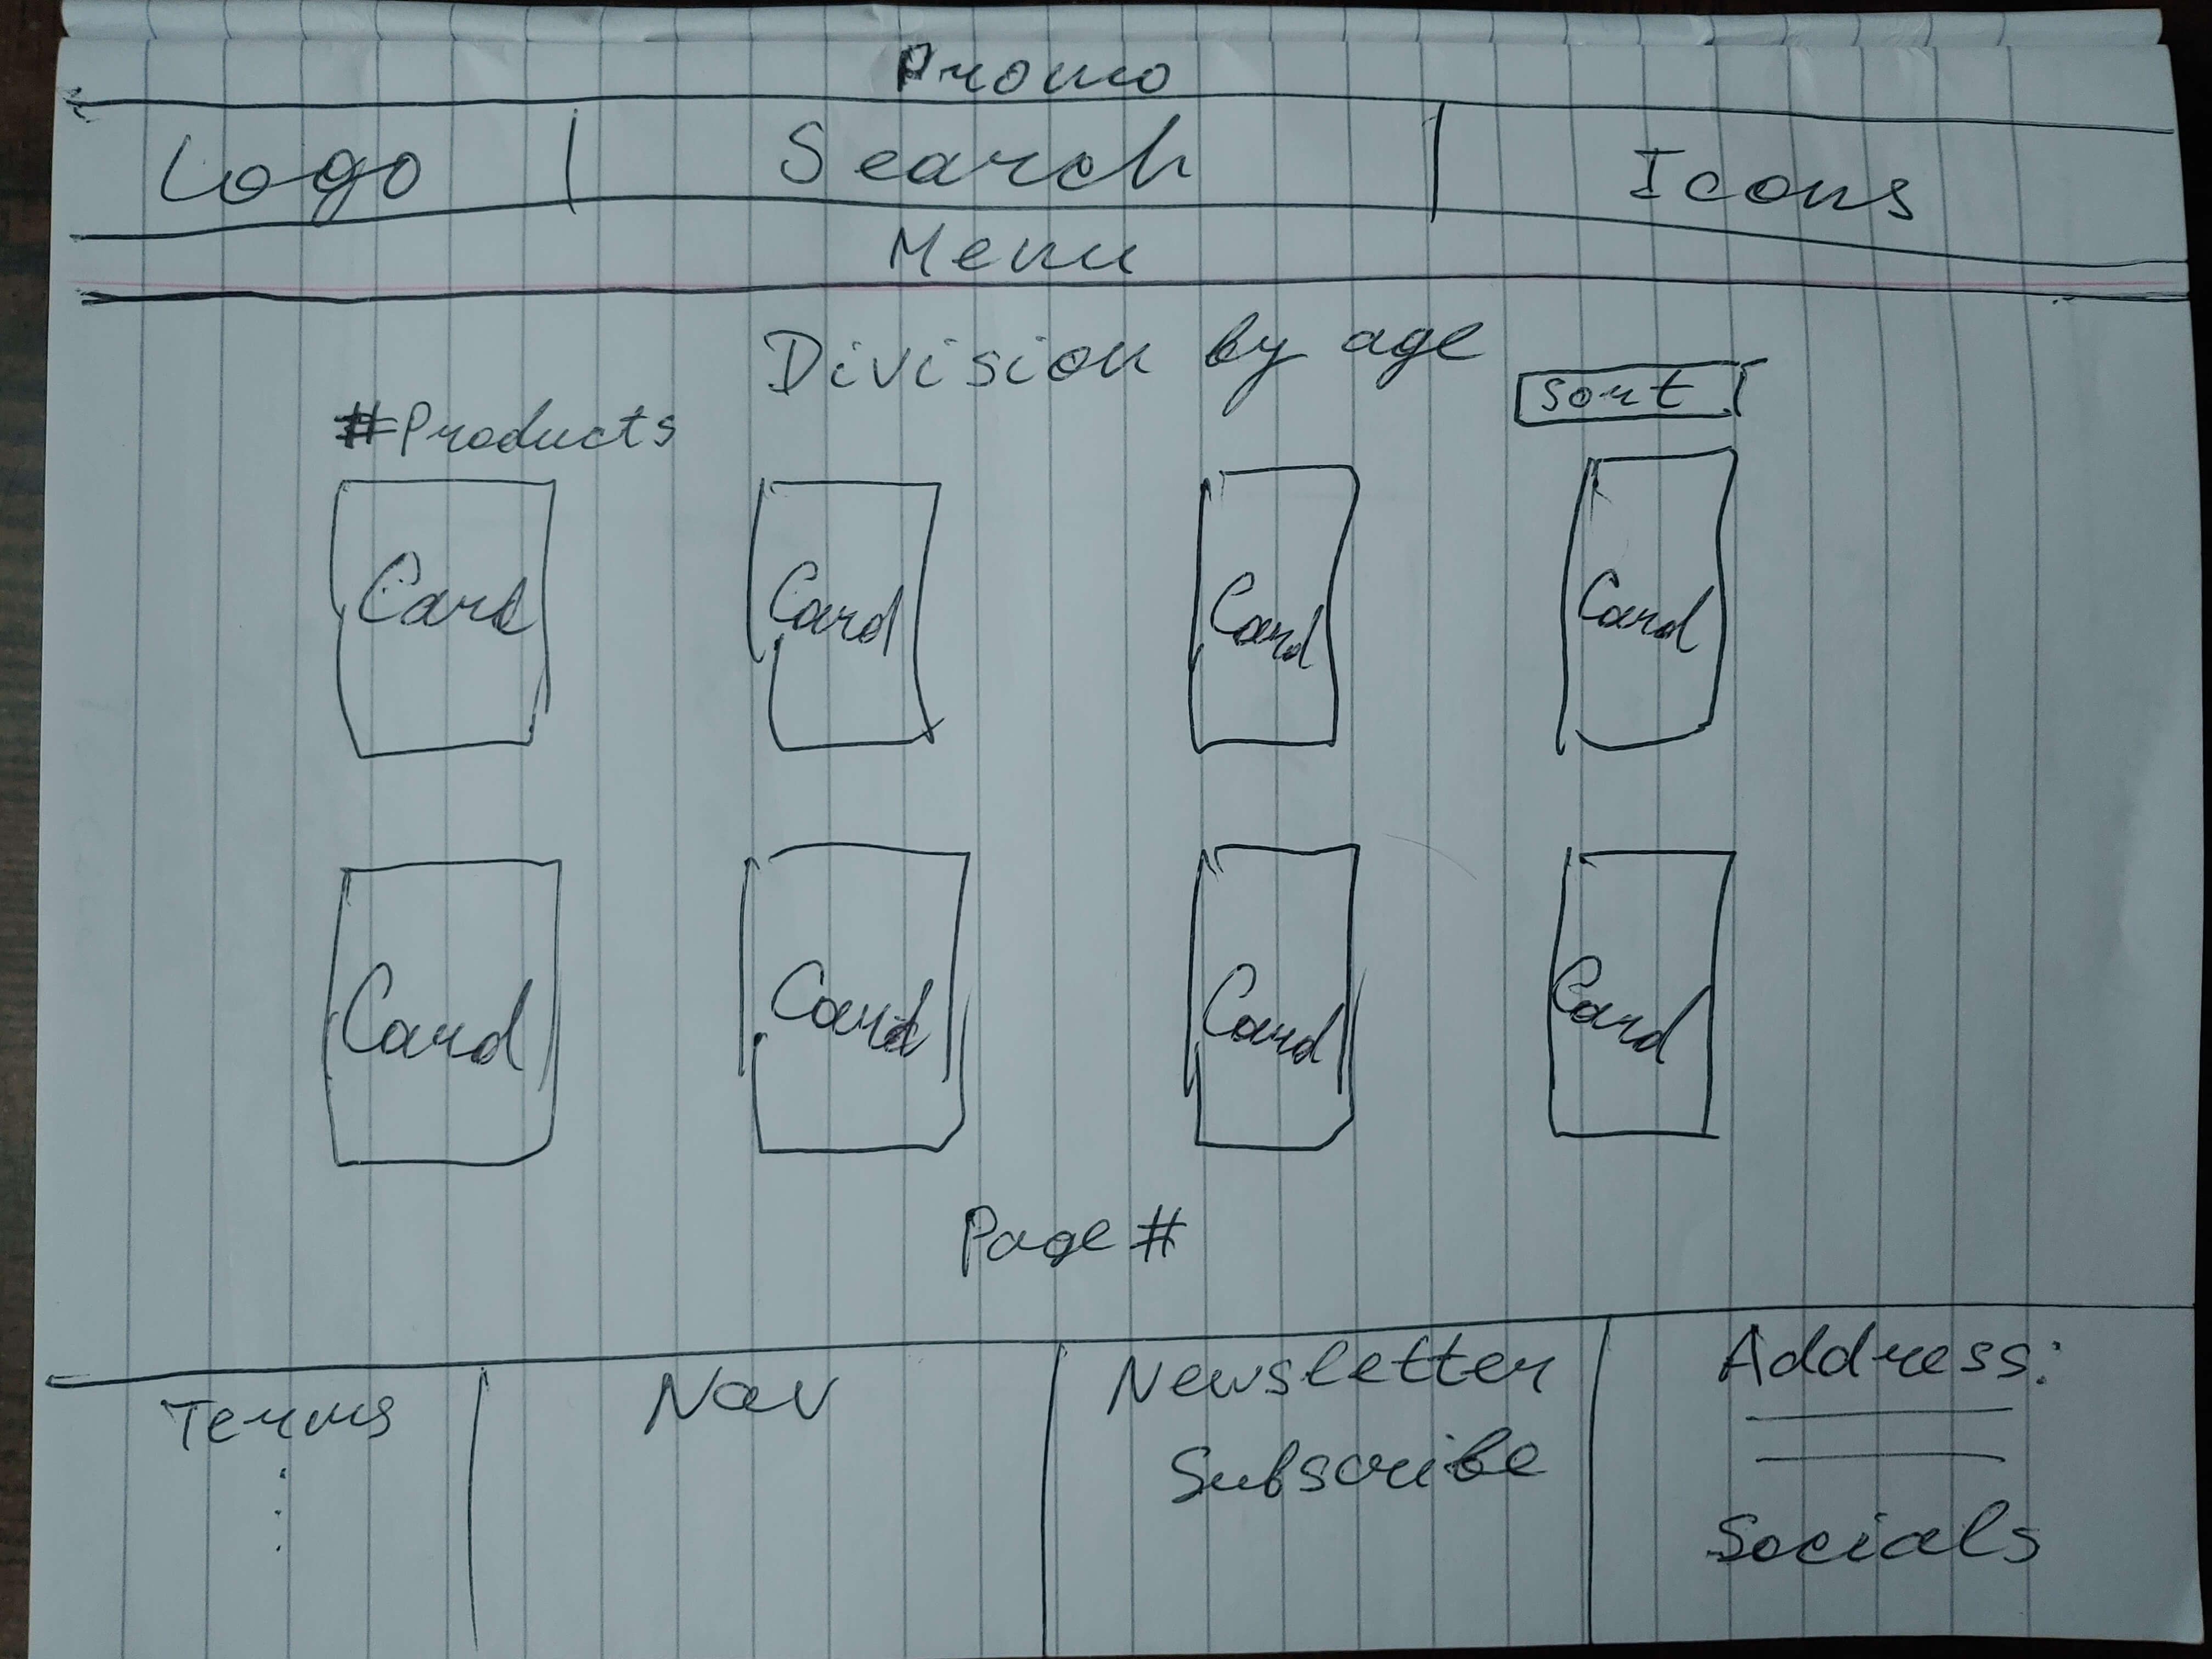 Promo
Logo Search Icons
Menu
Division by age
Sort
#Products
Card Card Card Card
Card Card Card Card
Page #
Terms Nav Newsletter Address:
Subscribe
Socials